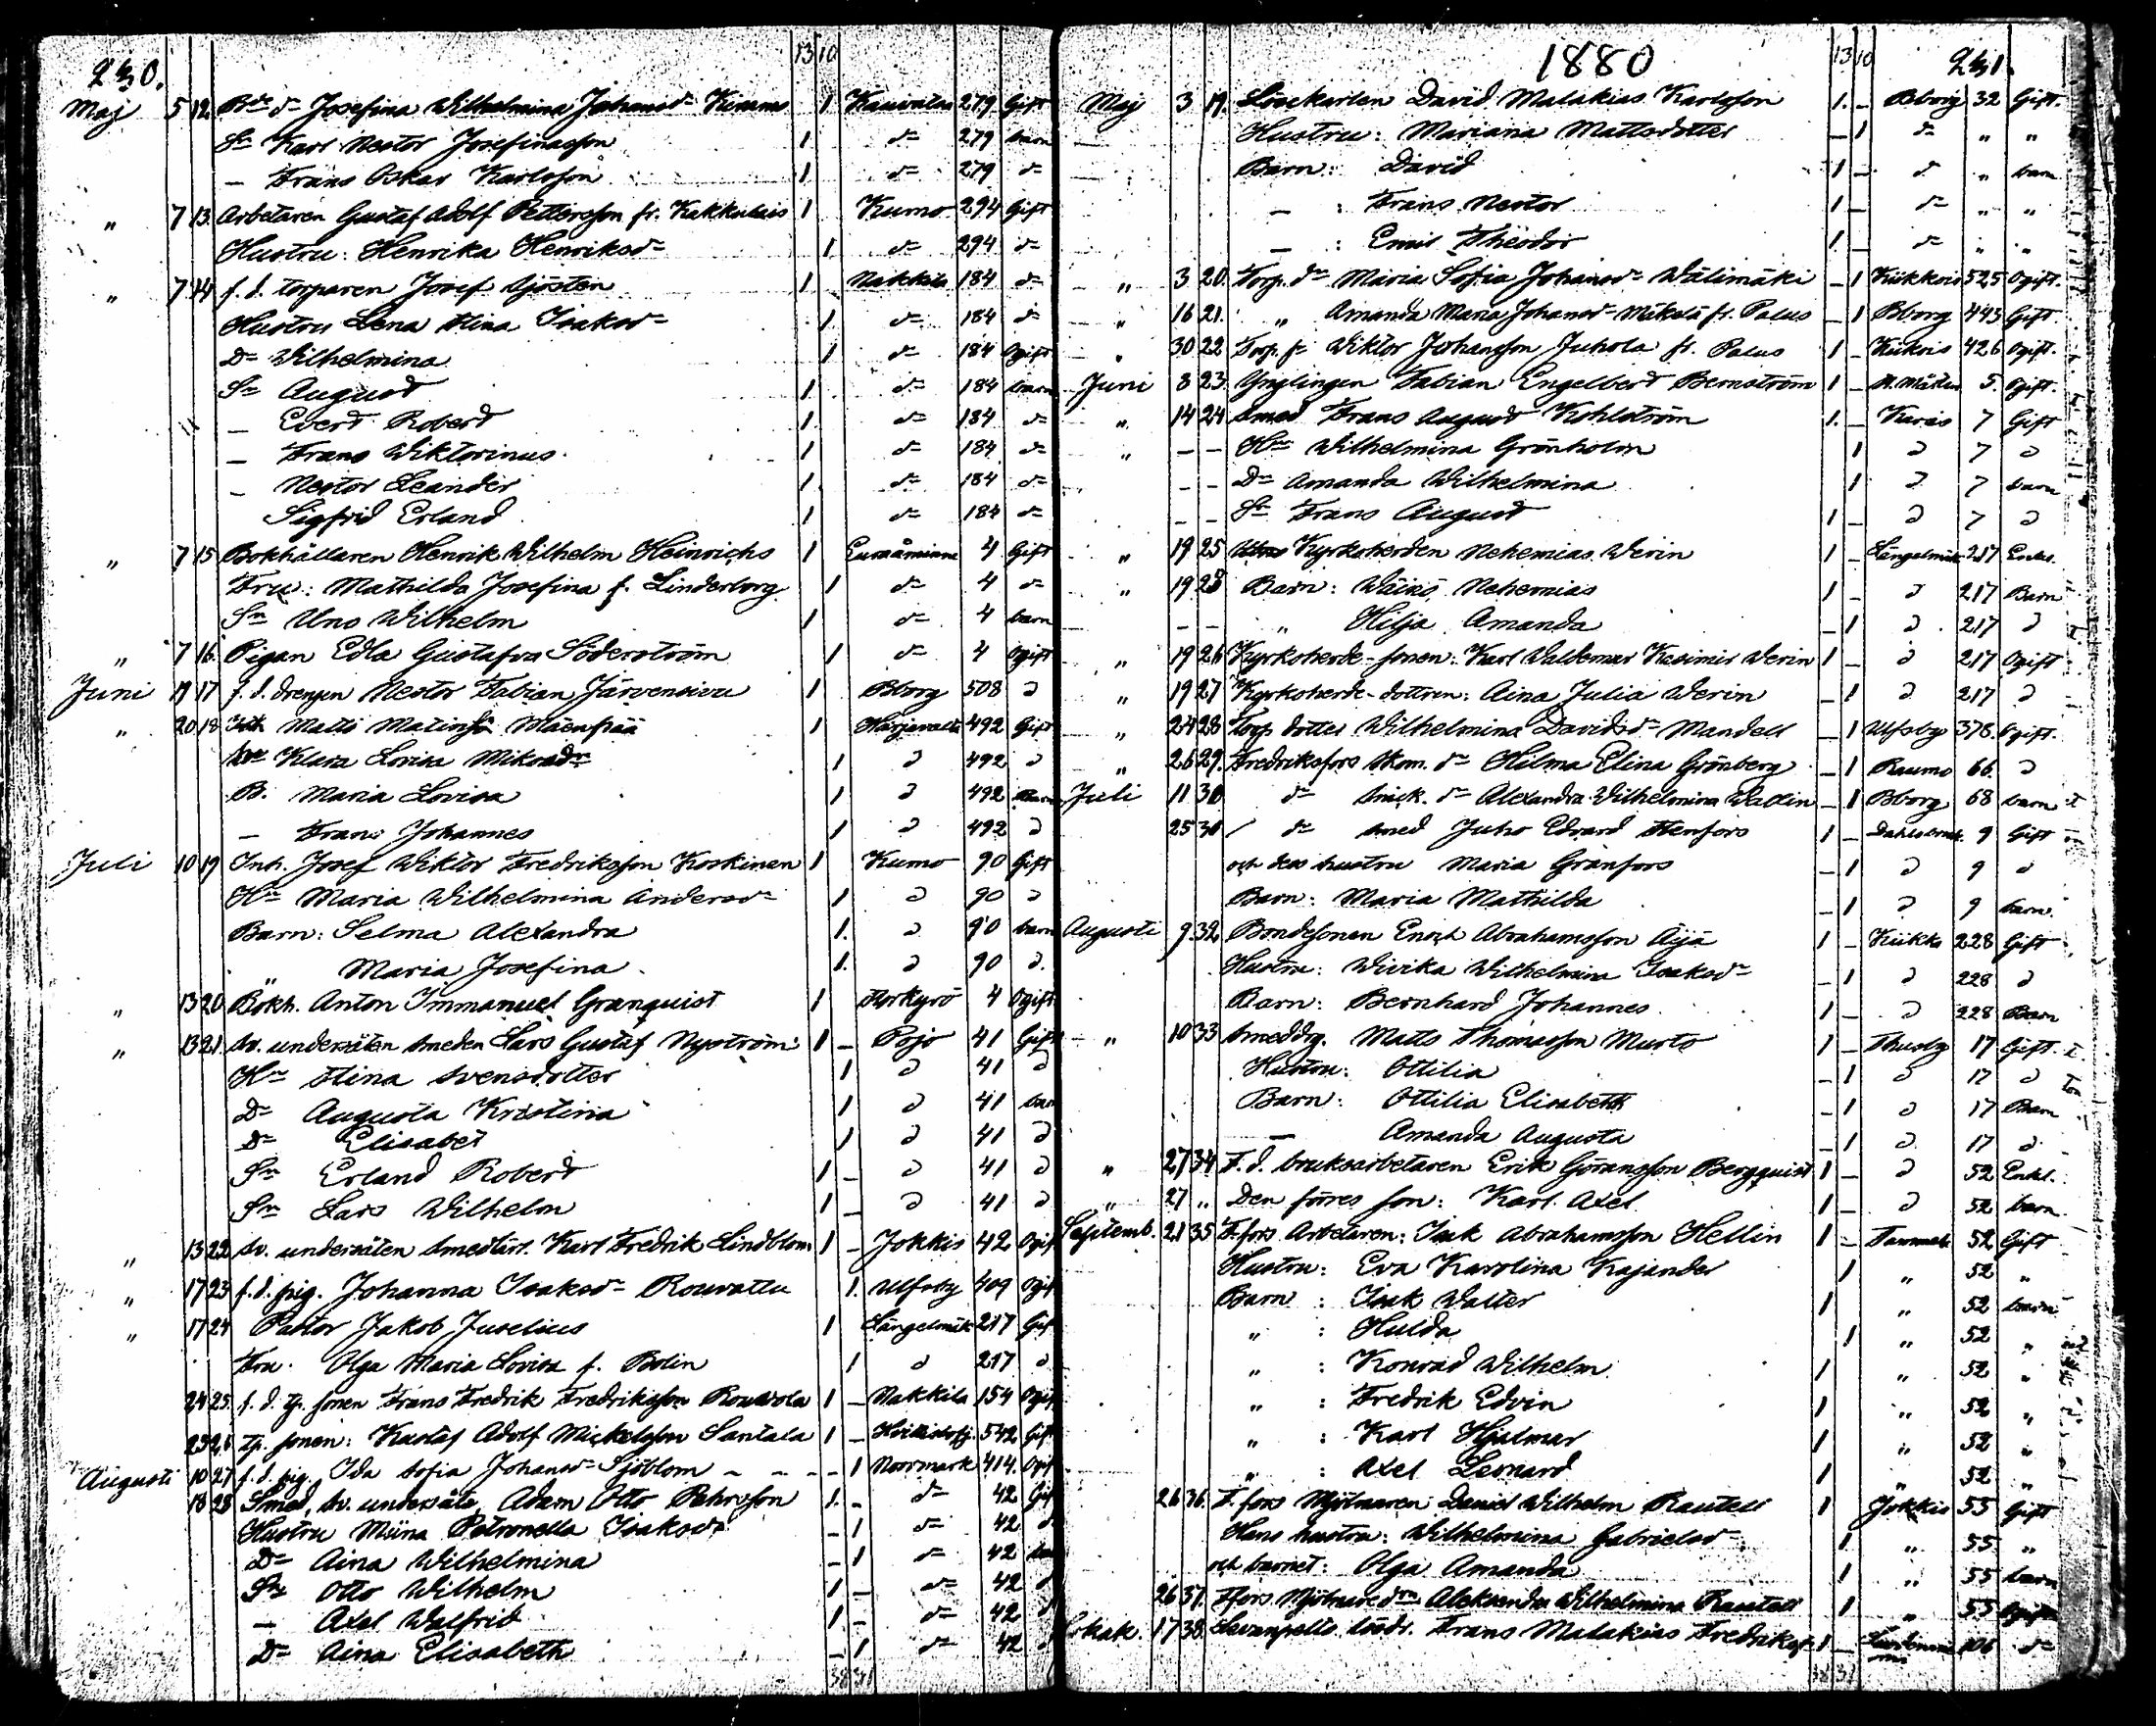 230.
13 10
Maj 5 12 Bde dr Josefina Wilhelmina Johansdr Kimmo 1 279 Gift
Sn Karl Nestor Josefinasson 1 dr 279 barn
— Frans Oskar Karlsson 1 dr 279 dr
" 7 13 Arbetaren Gustaf Adolf Pettersson fr. Kakkulais 1 Kumo 294 Gift
Hustru: Henrika Henriksdr 1 dr 294 dr
" 7 14 f. d. torparen Josef Sjösten 1 Nakkila 184 dr
Hustru Lena Stina Isaksdr 1 dr 184 dr
Dr Wilhelmina 1 dr 184 Ogift
Sn August 1 dr 184 barn
— Evert Robert 1 dr 184 dr
— Frans Wiktorinus 1 dr 184 dr
— Nestor Leander 1 dr 184 dr
Sigfrid Erland 1 dr 184 dr
" 7 15 Bokhållaren Henrik Wilhelm Heinrichs 1 Euraåminne 4 Gift
Fru: Mathilda Josefina f. Linderborg 1 dr 4 dr
Sn Uno Wilhelm 1 dr 4 barn
" 7 16 Pigan Edla Gustafva Söderström 1 dr 4 Ogift
Juni 19 17 f. d. drengen Nestor Fabian Järvensivu 1 Bborg 508 d
" 20 18 Matts Matinpä Mäenpää 1 Harjavalta 492 Gift
Hu Klara Lovisa Miksdr 1 d 492 d
B. Maria Lovisa 1 d 492 barn
— Frans Johannes 1 d 492 d
Juli 10 19 Inh. Josef Wiktor Fredriksson Koskinen 1 Kumo 90 Gift
Hu Maria Wilhelmina Andersdr 1 d 90 d
Barn: Selma Alexandra 1. d 90 barn
" Maria Josefina 1. d 90 d.
" 13 20 Bokh. Anton Immanuel Granquist 1 Storkyrö 4 Ogift
" 13 21 Sv. undersåten Smeden Lars Gustaf Nyström 1 — Pojo 41 Gift
Hu Stina Svensdotter 1 d 41 d
Dr Augusta Kristina 1 d 41 barn
Dr Elisabet 1 d 41 d
Sn Erland Robert 1 — d 41 d
Sn Lars Wilhelm 1 — d 41 d
" 13 22 Sv. undersåten Smedlärl. Karl Fredrik Lindblom 1 — Jokkis 42 Ogift
" 17 23 f. d. pig. Johanna Isaksdr Rouvattu 1. Ulfsby 409 Ogift
" 17 24 Pastor Jakob Juselius 1 Längelmäki 217 Gift
Fru. Olga Maria Lovisa f. Bolin 1 d 217 d
24 25 f. d. tp. sonen Frans Fredrik Fredriksson Rouvola 1 — Nakkila 154 Ogift
23 26 tp. sonen: Kustaf Adolf Mickelsson Santala 1 — 542 Gift
Augusti 10 27 f. d. pig. Ida Sofia Johansdr Sjöblom - - - - 1 Norrmark 414. Ogift
18 28 Smed, Sv. undersåte, Adam Otto Pehrsson 1. - dr 42 Gift
Hustru Miina Petronella Isaksdr - 1 dr 42 d
Dr Aina Wilhelmina - 1 dr 42 barn
Sn Otto Wilhelm 1 — dr 42 d
— Axel Walfrid 1 - dr 42 d
Dr Aina Elisabeth - 1 dr 42 d
38 31
1880
13 10
231.
Maj 3 19. Lösekarlen David Malakias Karlsson 1. - Bborg 32 Gift.
Hustru: Mariana Mattsdotter — 1 dr " "
Barn: David 1 — dr " barn
— : Frans Nestor 1 — dr " "
— : Emil Theodor 1 — dr " "
" 3 20. Torp. dr Maria Sofia Johansdr Wälimäki — 1 Kiikkois 525 Ogift.
" 16 21. " Amanda Maria Johansdr Mäkelä fr. Palus — 1 Bborg 443 Gift.
" 30 22 Torp. sn Wiktor Johansson Juhola fr. Palus 1 - Kiikois 426 Ogift.
Juni 8 23. Ynglingen Fabian Engelbert Bernström 1 — 5. Ogift.
" 14 24 Smed Frans August Kohlström 1. — 7 Gift
" — — Hu Wilhelmina Grönholm 1 d 7 d
- - Dr Amanda Wilhelmina 1 d 7 barn
- - Sn Frans August 1 — d 7 d
" 19 25 Kyrkoherden Nehemias Werin 1 — Längelmäki 217 Enkl.
" 19 25 Barn: Wäinö Nehemias 1 — d 217 Barn
— — " Hilja Amanda — 1 d. 217 d
" 19 26 Kyrkoherde-sonen: Karl Waldemar Kasimir Werin 1 — d 217 Ogift
" 19 27 Kyrkoherde-dottren: Aina Julia Werin — 1 d 217 d
" 24 28 Torp. dotter Wilhelmina Davidsdr Mandell — 1 Ulfsby 378. Ogift.
" 26 29. Fredriksfors skom. dr Hilma Elina Grönberg — 1 Raumo 66 d
Juli 11 30 dr snick. dr Alexandra Wilhelmina Wallin — 1 Bborg 68 barn
25 31 dr smed Juho Edvard Stenfors 1 — Dahlsbruk 9 Gift
och dess hustru Maria Granfors — 1 d 9 d
Barn: Maria Mathilda — 1 d 9 barn
Augusti 9 32 Bondesonen Enoch Abrahamsson Äijä 1 — Kiikka 228 Gift
Hustru: Wivika Wilhelmina Isaksdr — 1 d 228 d
Barn: Bernhard Johannes 1 — d 228 Barn
" 10 33 Smeddrg. Matts Thomasson Murto 1 — Thusby 17 Gift.
Hustru: Ottilia — 1 d 17 d
Barn: Ottilia Elisabeth — 1 d 17 Barn
— Amanda Augusta — 1 d 17 d
" 27 34 F. d. bruksarbetaren Erik Göransson Bergquist 1 — d 52 Enkl.
" 27 " Den förres son: Karl Axel 1 — d 52 barn
Septemb. 21 35 F.fors Arbetaren: Isak Abrahamsson Hellin 1 — Tammela 52 Gift
Hustru: Eva Karolina Kajander 1 " 52 "
Barn : Isak Walter 1 " 52 barn
" : Hulda 1 " 52 "
" : Konrad Wilhelm 1 " 52 "
" : Fredrik Edvin 1 " 52 "
" : Karl Hjalmar 1 " 52 "
" : Axel Leonard 1 " 52 "
26 36. F.fors Mjölnaren Daniel Wilhelm Rautell 1 Jokkis 55 Gift
Hans hustru: Wilhelmina Gabrielsdr 1 " 55 "
och barnet: Olga Amanda 1 " 55 barn
26 37. F.fors Mjölnare dren Aleksandra Wilhelmina Rautell 1 " 55 Ogift
17 38. Frans Malakias Fredriksson 1 — 106 dr
38 31